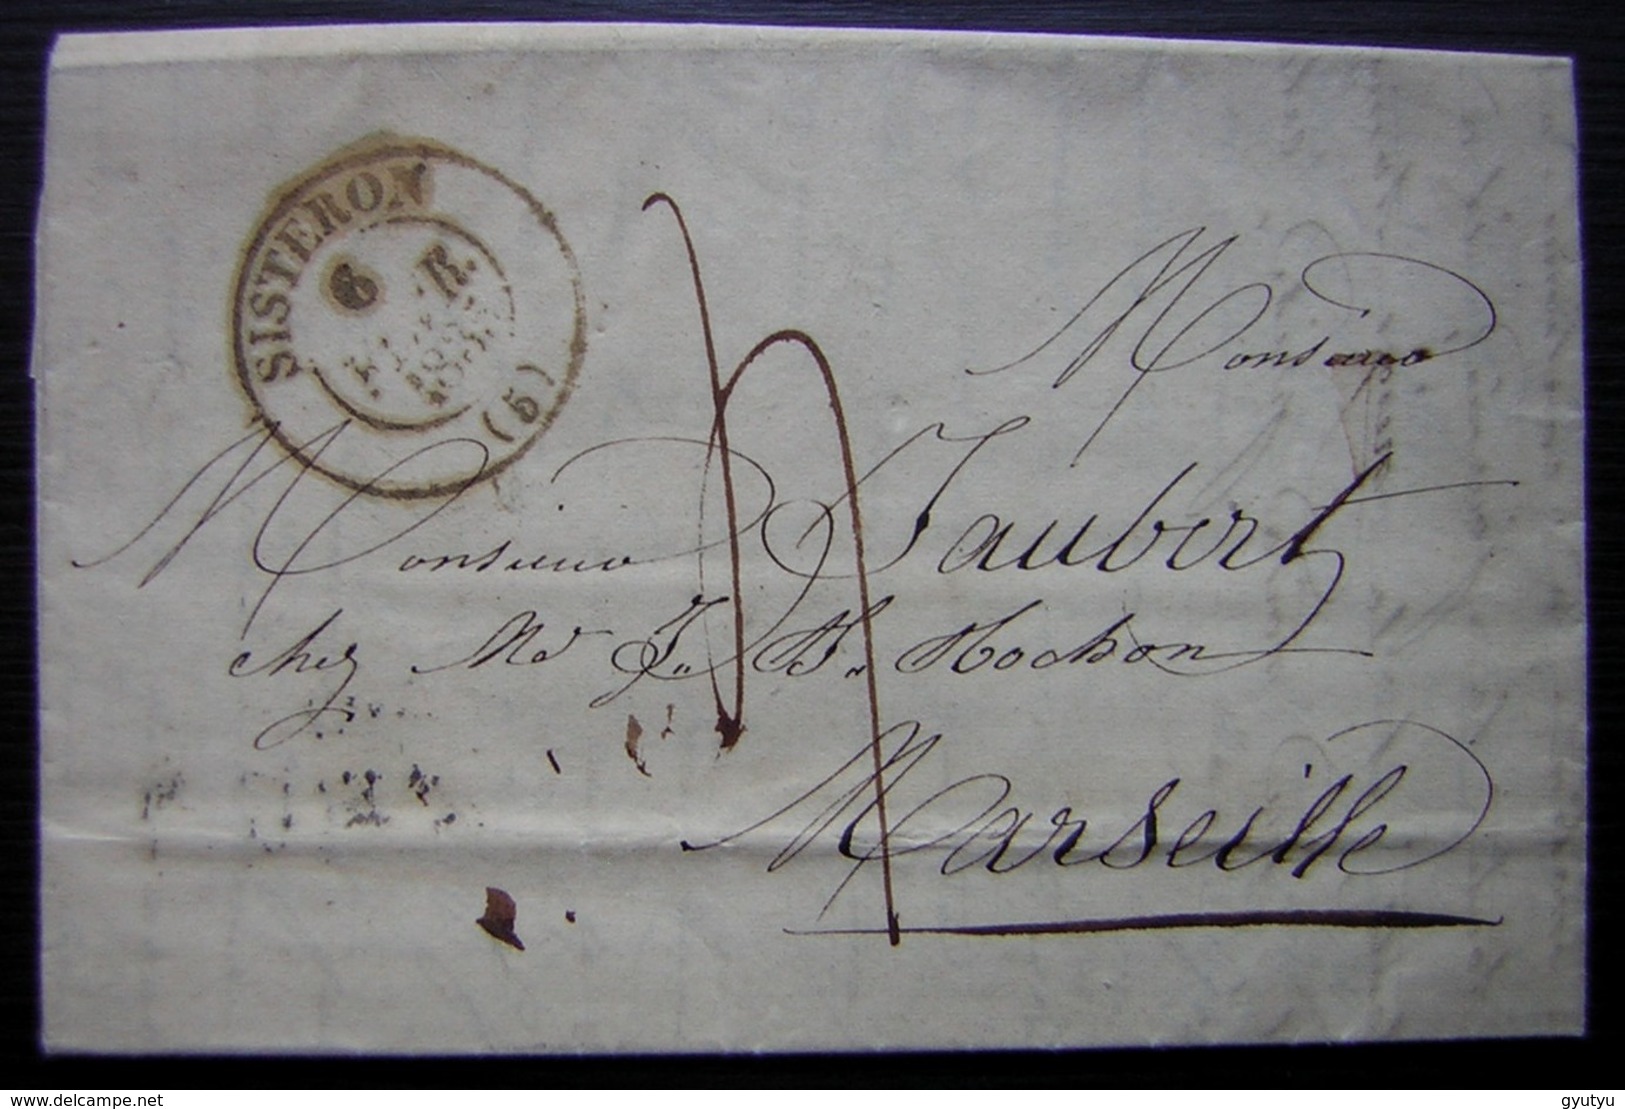 SISTERON
6
FEVR.
(5)
4
Monsieur
Monsieur Jaubert
chez Md J. H. Hochon
Marseille
delcampe.net
gyutyu